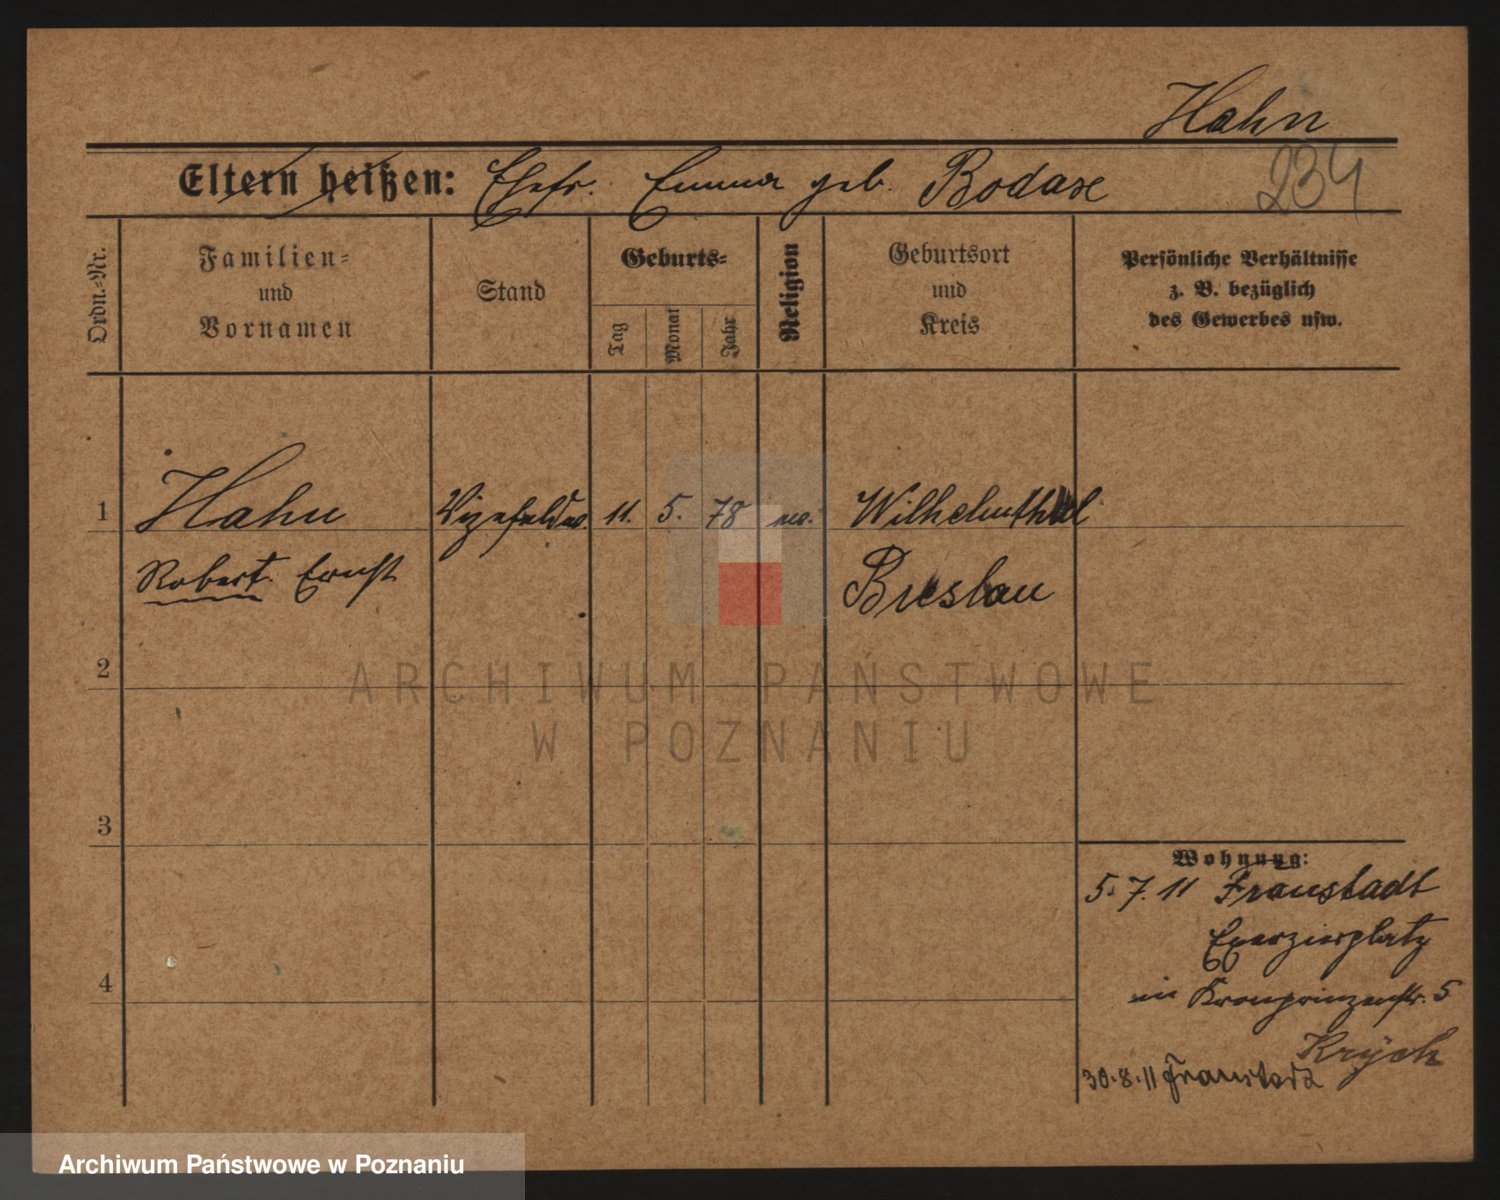 Hahn
234
Eltern heißen: Ehefr. Emma geb. Bodaxe
Ordn.-Nr.
Familien-
und
Vornamen
Stand
Geburts-
Tag
Monat
Jahr
Religion
Geburtsort
und
Kreis
Persönliche Verhältnisse
z. B. bezüglich
des Gewerbes usw.
1
Hahn
Robert Ernst
Vizefeldw.
11.
5.
78
ev.
Wilhelmthal
Breslau
2
3
4
Wohnung:
5.7.11 Fraustadt
Exerzierplatz
Kronprinzenstr. 5
30.8.11 Fraustadt
ARCHIWUM PAŃSTWOWE
W POZNANIU
Archiwum Państwowe w Poznaniu